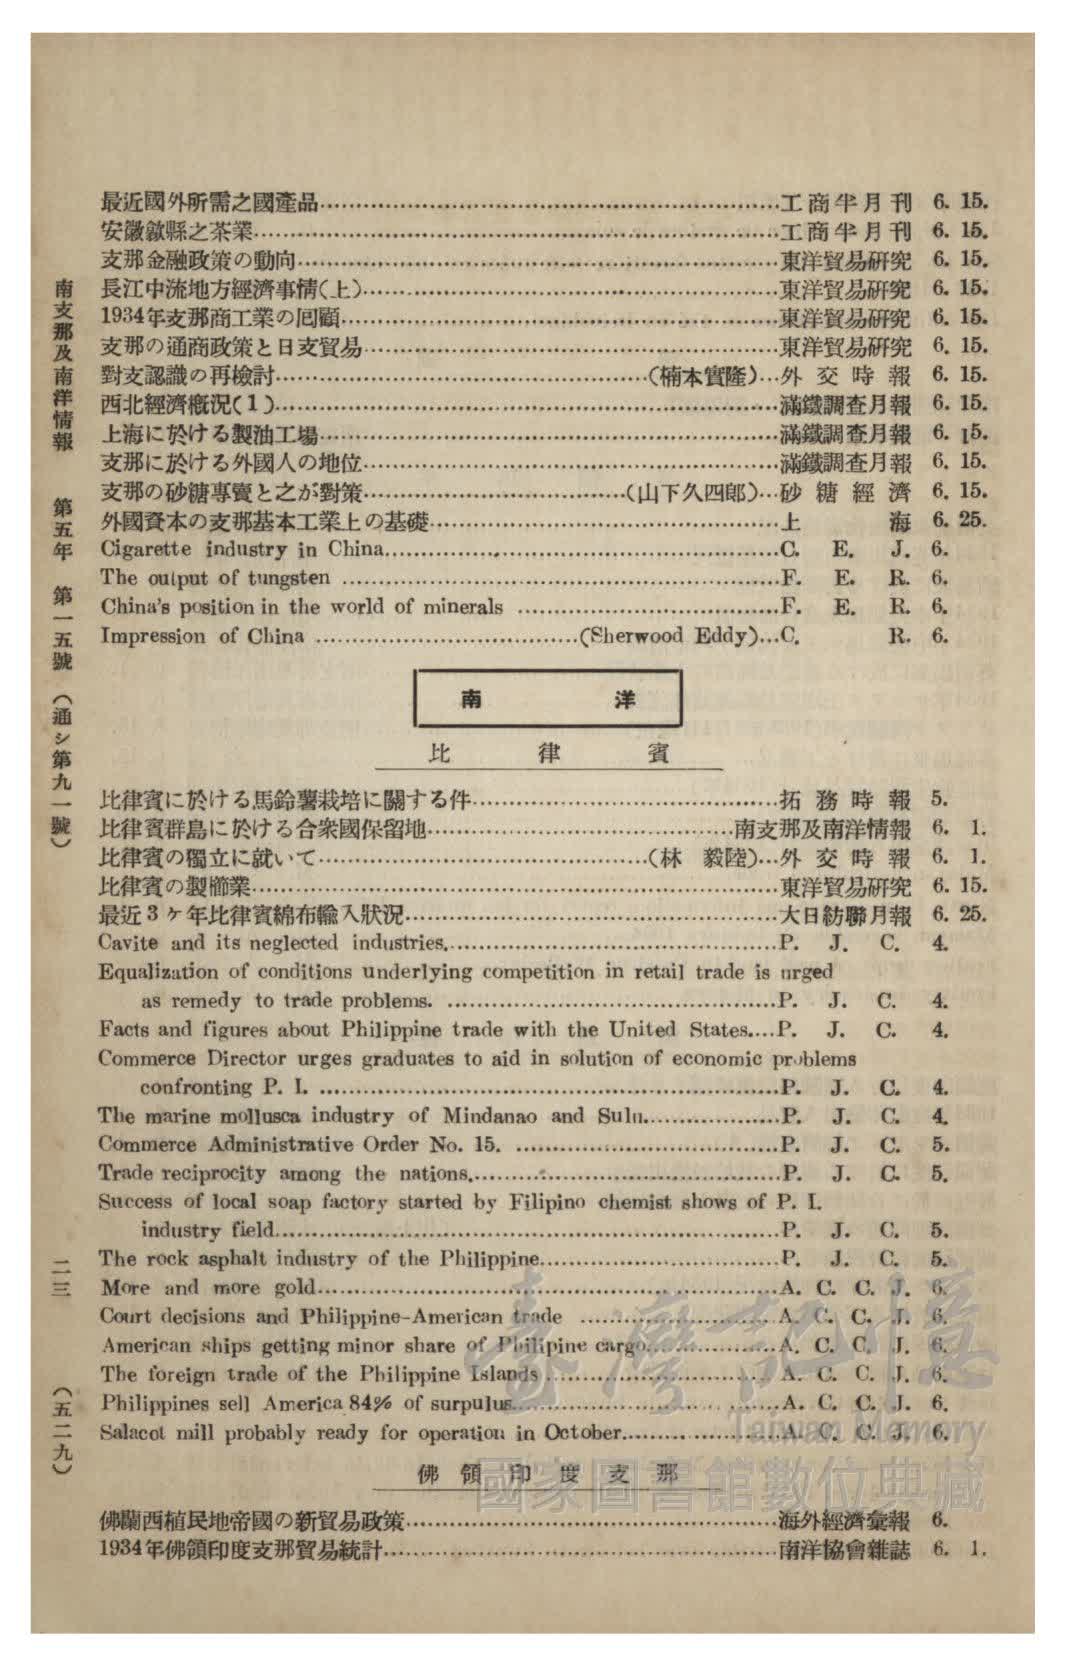 最近國外所需之國產品……工商半月刊 6. 15.
安徽歙縣之茶業……工商半月刊 6. 15.
支那金融政策の動向……東洋貿易硏究 6. 15.
長江中流地方經濟事情(上)……東洋貿易硏究 6. 15.
1934年支那商工業の囘顧……東洋貿易硏究 6. 15.
支那の通商政策と日支貿易……東洋貿易硏究 6. 15.
對支認識の再檢討……(楠本實隆)…外交時報 6. 15.
西北經濟槪況(1)……滿鐵調查月報 6. 15.
上海に於ける製油工場……滿鐵調查月報 6. 15.
支那に於ける外國人の地位……滿鐵調查月報 6. 15.
支那の砂糖專賣と之が對策……(山下久四郎)…砂糖經濟 6. 15.
外國資本の支那基本工業上の基礎……上海 6. 25.
Cigarette industry in China……C. E. J. 6.
The output of tungsten ……F. E. R. 6.
China's position in the world of minerals ……F. E. R. 6.
Impression of China ……(Sherwood Eddy)…C. R. 6.
南洋
比律賓
比律賓に於ける馬鈴薯栽培に關する件……拓務時報 5.
比律賓群島に於ける合衆國保留地……南支那及南洋情報 6. 1.
比律賓の獨立に就いて……(林 毅陸)…外交時報 6. 1.
比律賓の製櫛業……東洋貿易硏究 6. 15.
最近3ヶ年比律賓綿布輸入狀況……大日紡聯月報 6. 25.
Cavite and its neglected industries.……P. J. C. 4.
Equalization of conditions underlying competition in retail trade is urged
as remedy to trade problems. ……P. J. C. 4.
Facts and figures about Philippine trade with the United States....P. J. C. 4.
Commerce Director urges graduates to aid in solution of economic problems
confronting P. I. ……P. J. C. 4.
The marine mollusca industry of Mindanao and Sulu……P. J. C. 4.
Commerce Administrative Order No. 15. ……P. J. C. 5.
Trade reciprocity among the nations.……P. J. C. 5.
Success of local soap factory started by Filipino chemist shows of P. I.
industry field……P. J. C. 5.
The rock asphalt industry of the Philippine……P. J. C. 5.
More and more gold……A. C. C. J. 6.
Court decisions and Philippine-American trade ……A. C. C. J. 6.
American ships getting minor share of Philipine cargo……A. C. C. J. 6.
The foreign trade of the Philippine Islands……A. C. C. J. 6.
Philippines sell America 84% of surpulus……A. C. C. J. 6.
Salacot mill probably ready for operation in October……A. C. C. J. 6.
佛領印度支那
佛蘭西植民地帝國の新貿易政策……海外經濟彙報 6.
1934年佛領印度支那貿易統計……南洋協會雜誌 6. 1.
南支那及南洋情報 第五年 第一五號 (通シ第九一號)
二三
(五二九)
臺灣記憶
Taiwan Memory
國家圖書館數位典藏